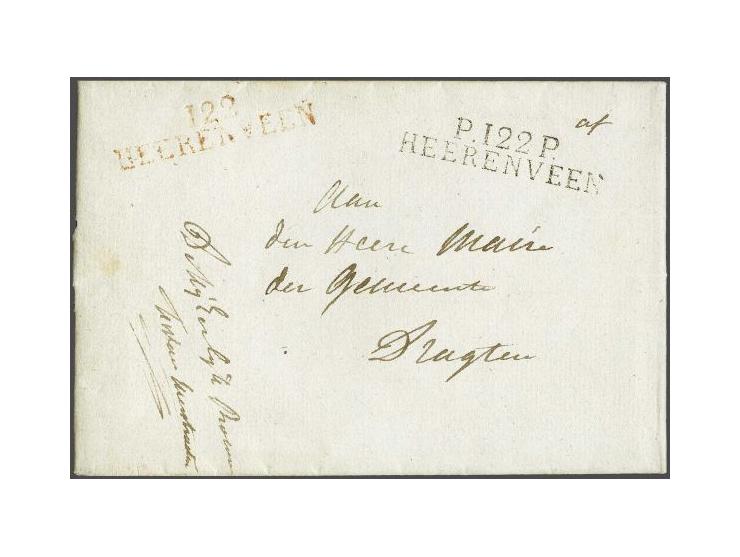 122
HEERENVEEN
P.122P.
HEERENVEEN
af
Aan
den Heere Maire
der Gemeente
Dragten